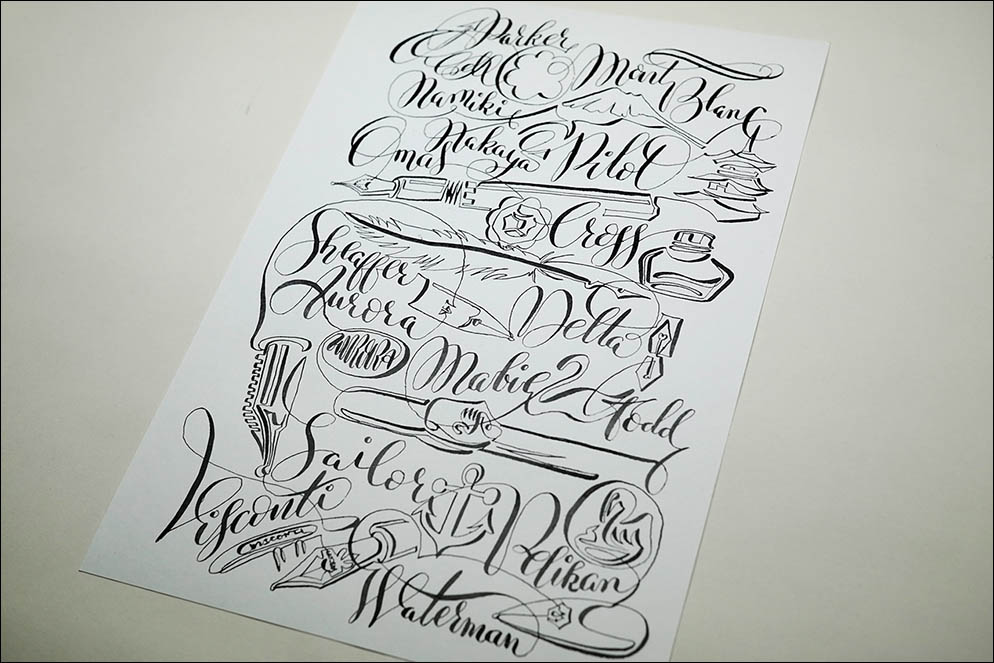 Parker
Mont Blanc
Namiki
Nakaya & Pilot
Omas
Cross
Sheaffer
Aurora
Delta
AURORA
Mabie Todd
Sailor
Visconti
VISCONTI
Pelikan
Waterman